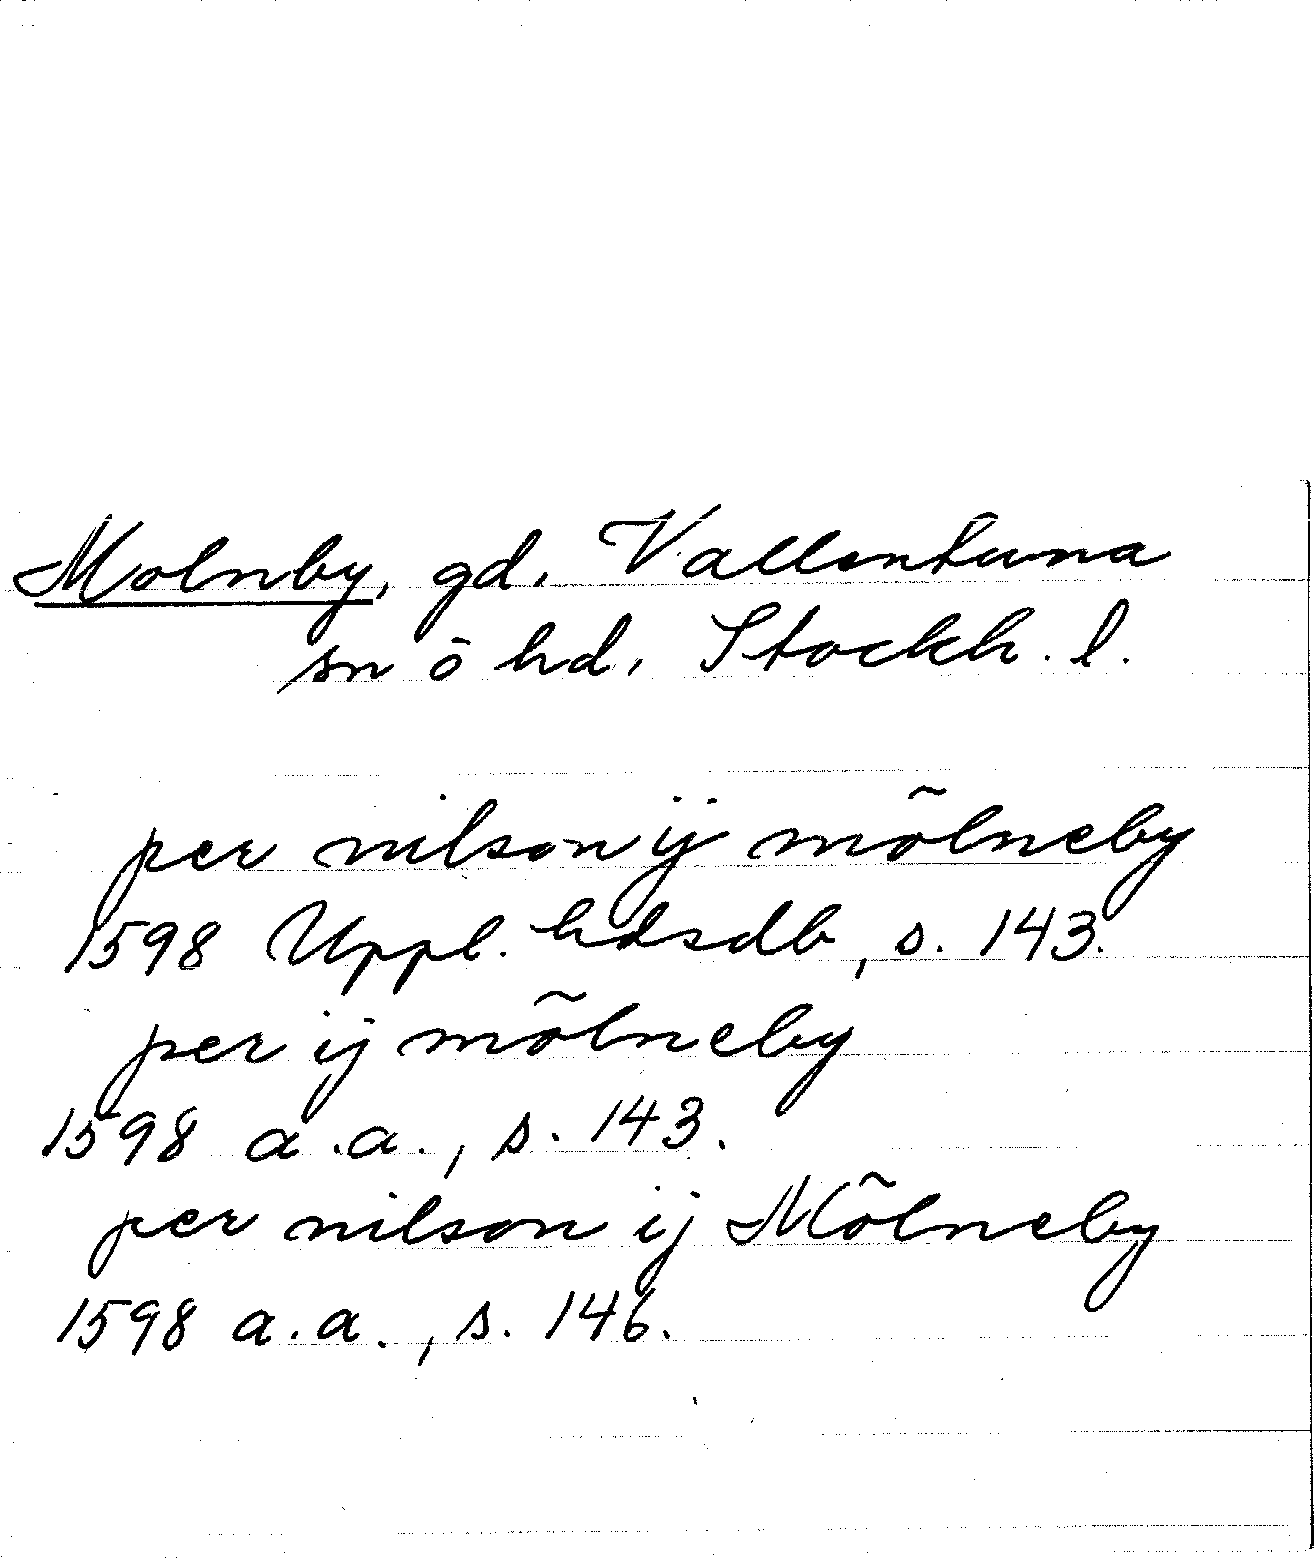 Molnby, gd, Vallentuna
sn o hd, Stockh. l.
per nilson ij mõlneby
1598 Uppl. hdsdb, s. 143.
per ij mõlneby
1598 a.a., s. 143.
per nilson ij Mõlneby
1598 a.a., s. 146.